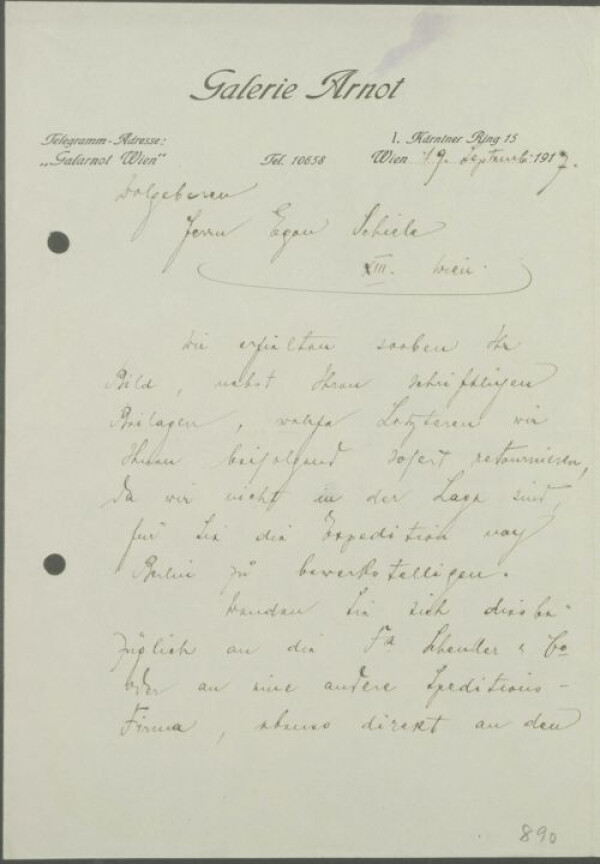 Galerie Arnot
Telegramm-Adresse:
„Galarnot Wien"
Tel. 10658
I. Kärntner Ring 15
Wien 19. Septemb. 1917.
Wolgeboren
Herrn Egon Schiele
XIII. Wien.
Wir erhielten soeben Ihr
Bild, nebst Ihren schriftlichen
Beilagen, welche Letzteren wir
Ihnen beifolgend sofort retournieren,
da wir nicht in der Lage sind,
für Sie die Expedition nach
Berlin zu bewerkstelligen.
Wenden Sie sich diesbe-
züglich an die Fa Schenker & Co
oder an eine andere Speditions-
Firma, ebenso direkt an den
890